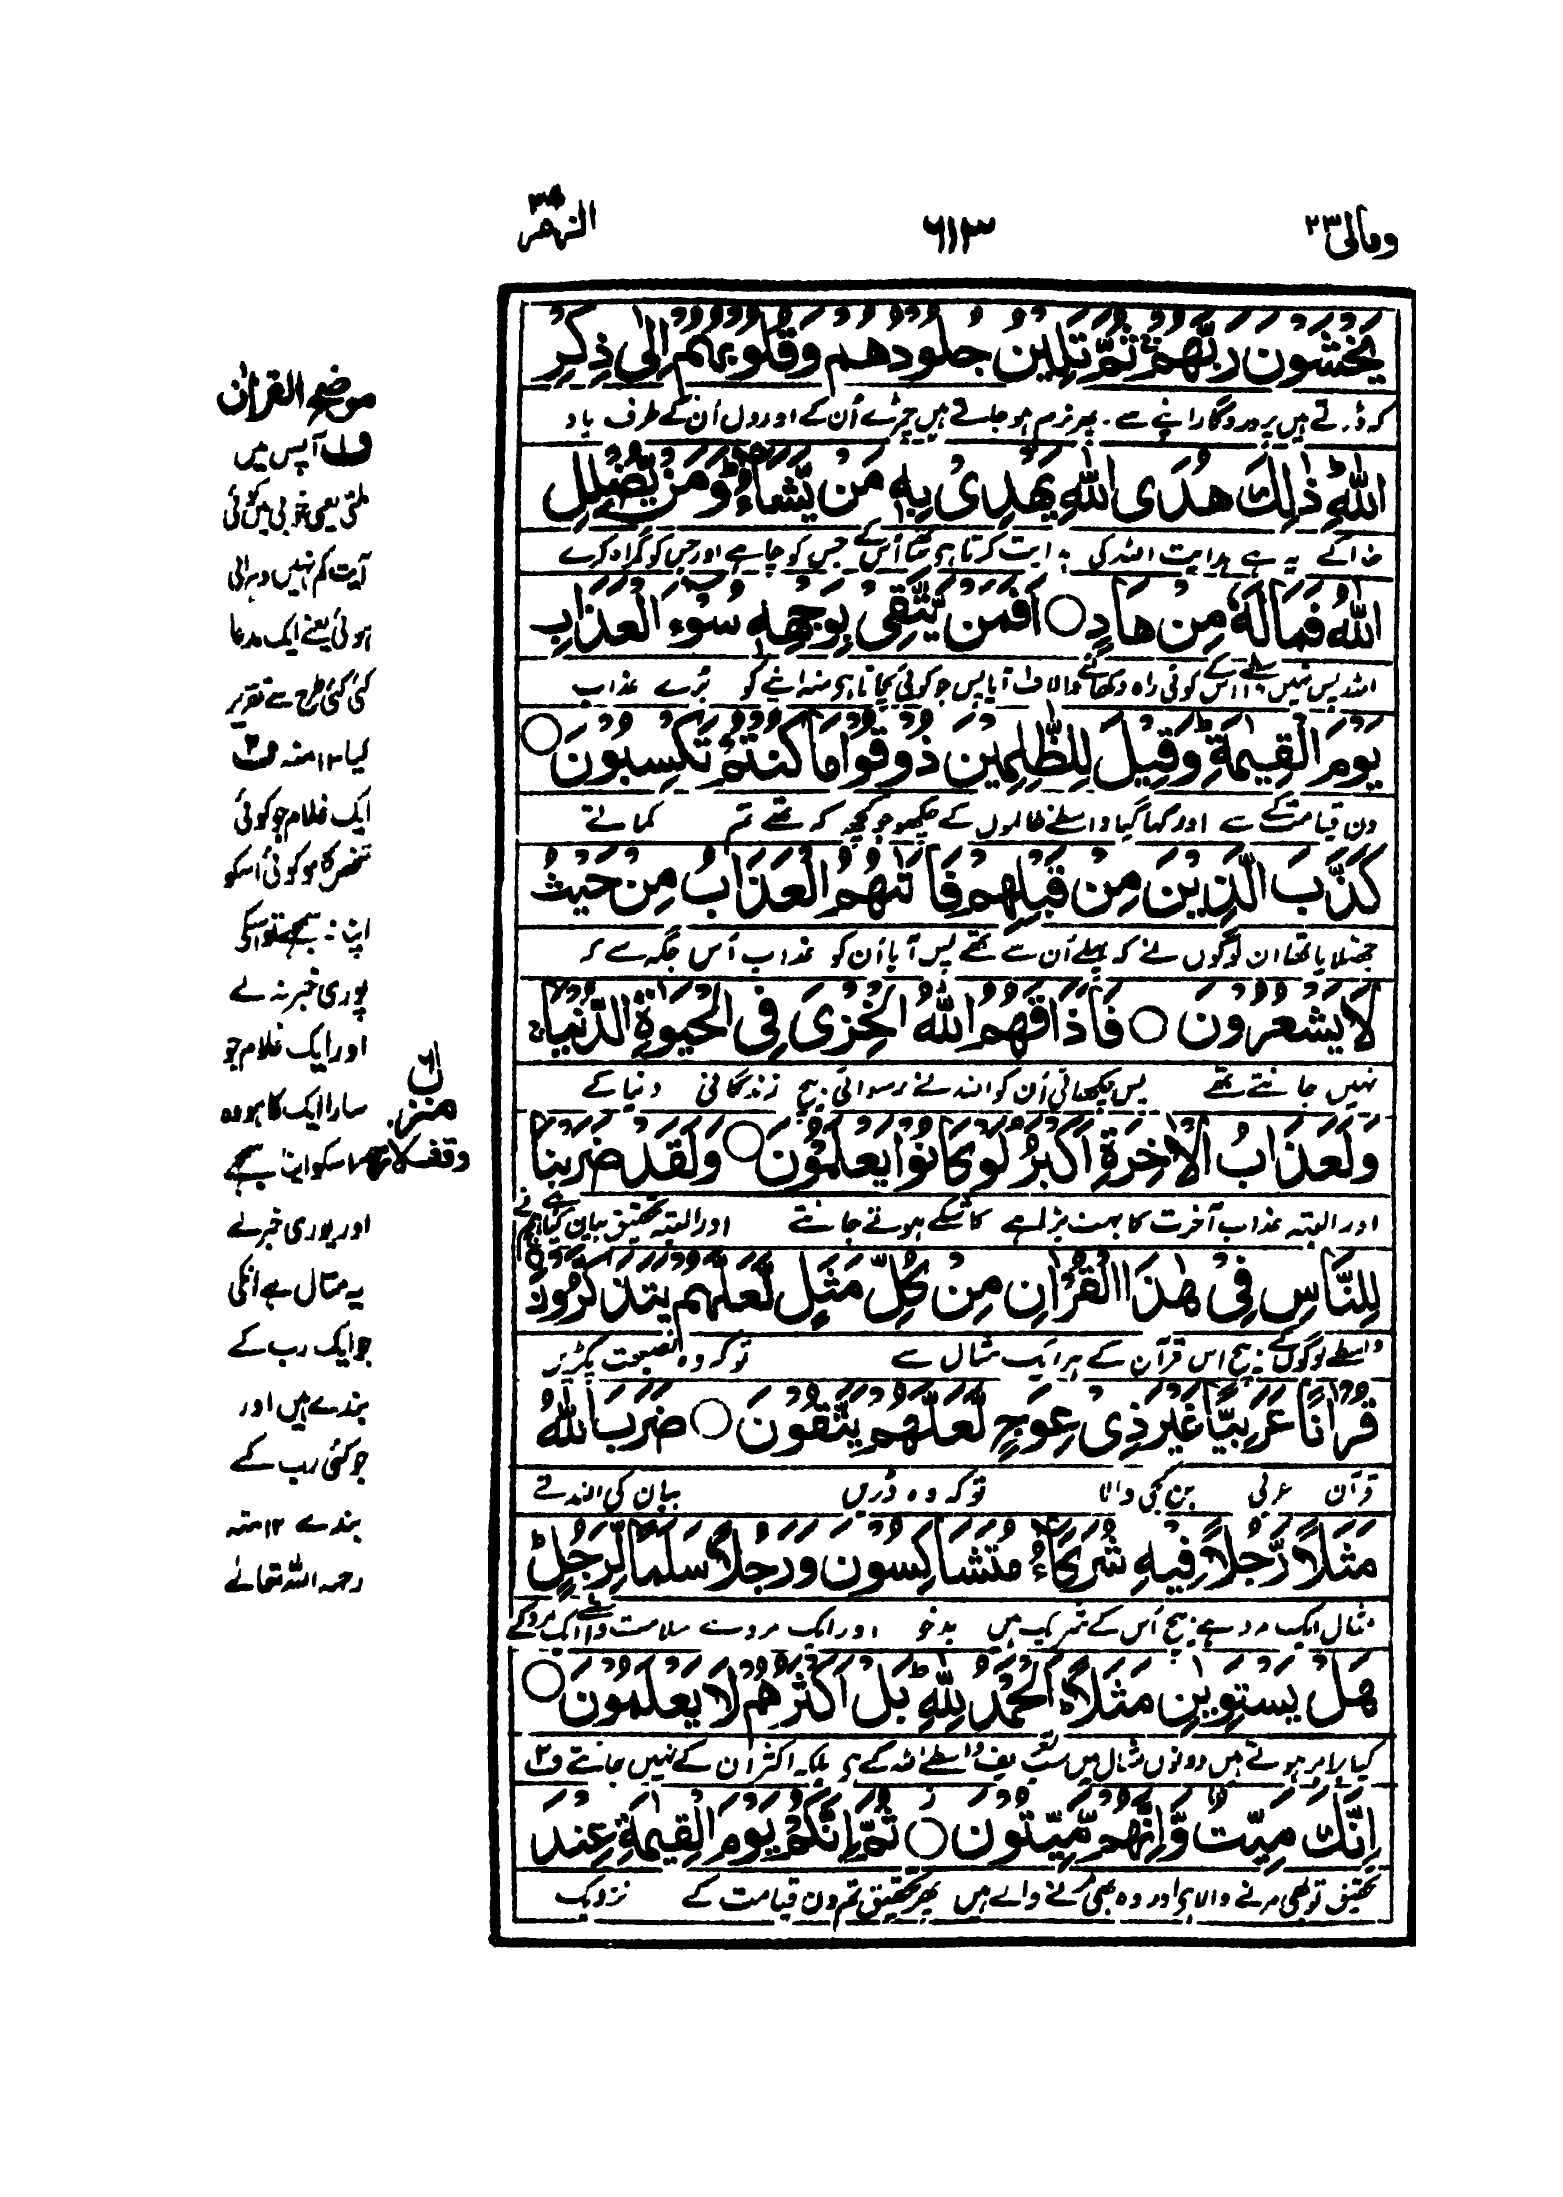 ومالی ۲۳
۶۱۳
الزمر ۳۹
يَخْشَوْنَ رَبَّهُمْ ثُمَّ تَلِيْنُ جُلُوْدُهُمْ وَقُلُوْبُهُمْ اِلٰى ذِكْرِ
کہ ڈرتے ہیں پروردگار اپنے سے۔ پھر نرم ہو جاتے ہیں چمڑے اُن کے اور دل اُن کے طرف یاد
اللّٰهِ ؕ ذٰلِكَ هُدَى اللّٰهِ يَهْدِىْ بِهٖ مَنْ يَّشَآءُ ؕ وَمَنْ يُّضْلِلِ
خدا کے یہ ہے ہدایت اللہ کی ہدایت کرتا ہی ساتھ اُس کے جس کو چاہے اور جس کو گمراہ کرے
اللّٰهُ فَمَا لَهٗ مِنْ هَادٍ ○ اَفَمَنْ يَّتَّقِىْ بِوَجْهِهٖ سُوْٓءَ الْعَذَابِ
اللہ پس نہیں واسطے اس کے کوئی راہ دکھانے والا ف۱ آیا پس جو کوئی بچاتا ہی منہ اپنے کو بُرے عذاب
يَوْمَ الْقِيٰمَةِ ؕ وَقِيْلَ لِلظّٰلِمِيْنَ ذُوْقُوْا مَا كُنْتُمْ تَكْسِبُوْنَ ○
دن قیامت کے سے اور کہا گیا واسطے ظالموں کے چکھو جو کچھ کہ تھے تم کماتے
كَذَّبَ الَّذِيْنَ مِنْ قَبْلِهِمْ فَاَتٰىهُمُ الْعَذَابُ مِنْ حَيْثُ
جھٹلایا تھا ان لوگوں نے کہ پہلے اُن سے تھے پس آیا اُن کو عذاب اُس جگہ سے کہ
لَا يَشْعُرُوْنَ ○ فَاَذَاقَهُمُ اللّٰهُ الْخِزْىَ فِى الْحَيٰوةِ الدُّنْيَا ۚ
نہیں جانتے تھے پس چکھائی اُن کو اللہ نے رسوائی بیچ زندگانی دنیا کے
وَلَعَذَابُ الْاٰخِرَةِ اَكْبَرُ ۘ لَوْ كَانُوْا يَعْلَمُوْنَ ○ وَلَقَدْ ضَرَبْنَا
اور البتہ عذاب آخرت کا بہت بڑا ہے کاشکے ہوتے جانتے اور البتہ تحقیق بیان کیا ہے ہم نے
لِلنَّاسِ فِىْ هٰذَا الْقُرْاٰنِ مِنْ كُلِّ مَثَلٍ لَّعَلَّهُمْ يَتَذَكَّرُوْنَ ○
واسطے لوگوں کے بیچ اس قرآن کے ہر ایک مثال سے تو کہ وہ نصیحت پکڑیں
قُرْاٰنًا عَرَبِيًّا غَيْرَ ذِىْ عِوَجٍ لَّعَلَّهُمْ يَتَّقُوْنَ ○ ضَرَبَ اللّٰهُ
قرآن عربی بن کجی والا تو کہ وہ ڈریں بیان کی اللہ نے
مَثَلًا رَّجُلًا فِيْهِ شُرَكَآءُ مُتَشَاكِسُوْنَ وَرَجُلًا سَلَمًا لِّرَجُلٍ ؕ
مثال ایک مرد ہے بیچ اُس کے شریک ہیں بدخو اور ایک مرد ہے سلامت واسطے ایک مرد کے
هَلْ يَسْتَوِيٰنِ مَثَلًا ؕ اَلْحَمْدُ لِلّٰهِ ؕ بَلْ اَكْثَرُهُمْ لَا يَعْلَمُوْنَ ○
کیا برابر ہوتے ہیں دونوں مثال میں سب تعریف واسطے اللہ کے ہی بلکہ اکثر اُن کے نہیں جانتے ف۲
اِنَّكَ مَيِّتٌ وَّاِنَّهُمْ مَّيِّتُوْنَ ○ ثُمَّ اِنَّكُمْ يَوْمَ الْقِيٰمَةِ عِنْدَ
تحقیق تو بھی مرنے والا ہی اور وہ بھی مرنے والے ہیں پھر تحقیق تم دن قیامت کے نزدیک
موضح القرآن
ف۱ آپس میں
ملتی یعنی خوبی میں کوئی
آیت کم نہیں دہرائی
ہوئی یعنے ایک مدعا
کئی کئی طرح سے تقریر
کیا ۱۲ منہ ف۲
ایک غلام جو کوئی
شخص کا ہو کوئی اُسکو
اپنا نہ سمجھے تو اسکی
پوری خبر نہ لے
اور ایک غلام جو
سارا ایک کا ہو وہ
اسکو اپنا سمجھے
اور پوری خبر لے
یہ مثال ہے انکی
جو ایک رب کے
بندے ہیں اور
جو کئی رب کے
بندے ۱۲ منہ
رحمہ اللہ تعالےٰ
منزل
وقف لازم